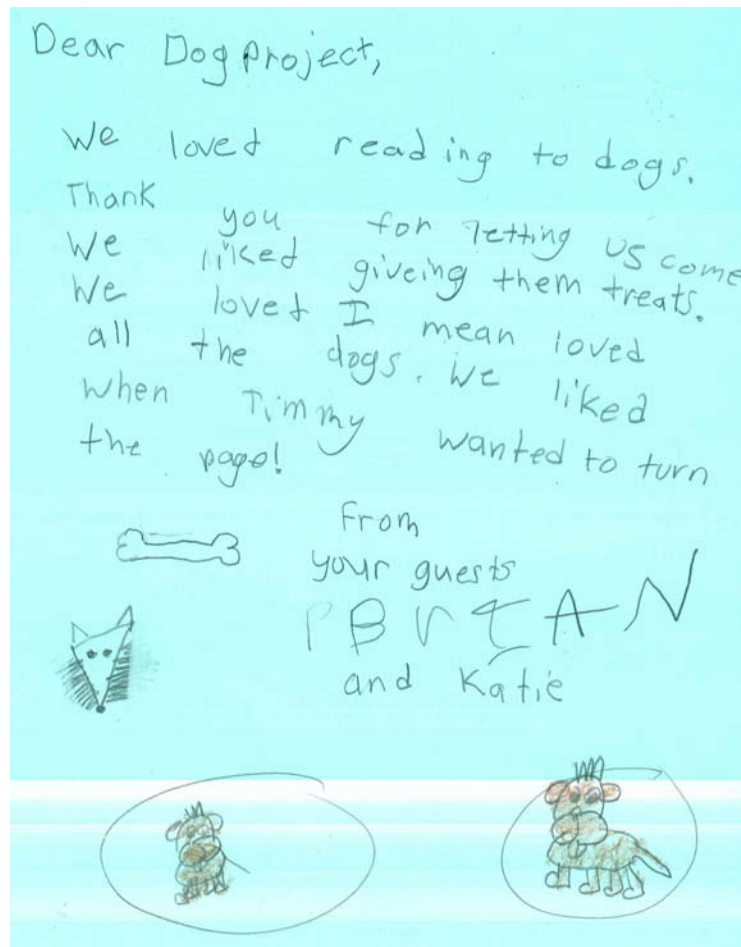 Dear Dog Project,
We loved reading to dogs.
Thank you for letting us come
We liked giveing them treats.
We loved I mean loved
all the dogs. We liked
when Timmy wanted to turn
the page!
From
your guests
BrIAN
and Katie